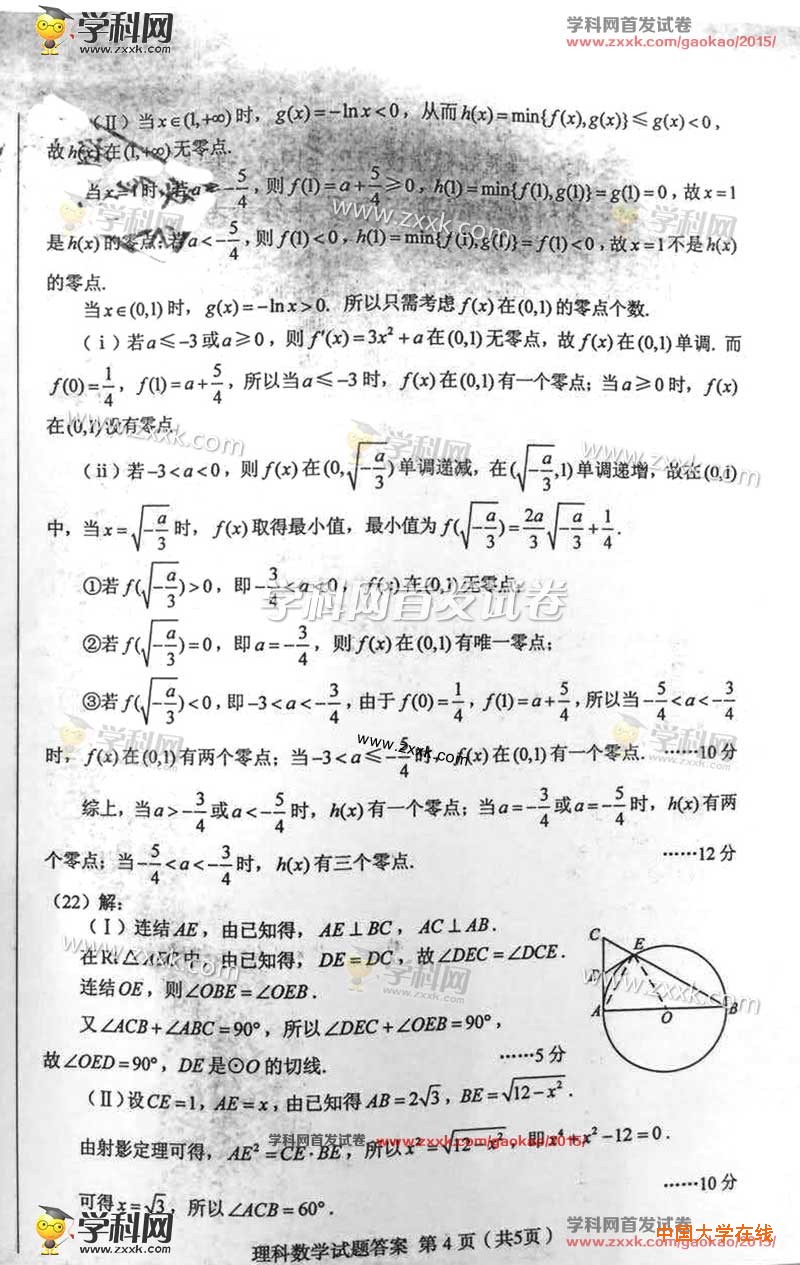 学科网
www.zxxk.com
学科网首发试卷
www.zxxk.com/gaokao/2015/
(Ⅱ)当x∈(1,+∞)时，g(x)=-lnx<0，从而h(x)=min{f(x),g(x)}≤g(x)<0，
故h(x)在(1,+∞)无零点.
当x=1时,若a≥-5/4，则f(1)=a+5/4≥0，h(1)=min{f(1),g(1)}=g(1)=0，故x=1
是h(x)的零点;若a<-5/4，则f(1)<0，h(1)=min{f(1),g(1)}=f(1)<0，故x=1不是h(x)
的零点.
当x∈(0,1)时，g(x)=-lnx>0. 所以只需考虑f(x)在(0,1)的零点个数.
(ⅰ)若a≤-3或a≥0，则f′(x)=3x²+a在(0,1)无零点，故f(x)在(0,1)单调. 而
f(0)=1/4，f(1)=a+5/4，所以当a≤-3时，f(x)在(0,1)有一个零点；当a≥0时，f(x)
在(0,1)没有零点.
www.zxxk.com
学科网
www.zxxk.com
(ⅱ)若-3<a<0，则f(x)在(0,√(-a/3))单调递减，在(√(-a/3),1)单调递增，故在(0,1)
中，当x=√(-a/3)时，f(x)取得最小值，最小值为f(√(-a/3))=2a/3√(-a/3)+1/4.
①若f(√(-a/3))>0，即-3/4<a<0，f(x)在(0,1)无零点;
学科网首发试卷
②若f(√(-a/3))=0，即a=-3/4，则f(x)在(0,1)有唯一零点;
③若f(√(-a/3))<0，即-3<a<-3/4，由于f(0)=1/4，f(1)=a+5/4，所以当-5/4<a<-3/4
时，f(x)在(0,1)有两个零点；当-3<a≤-5/4时，f(x)在(0,1)有一个零点. ……10分
www.zxxk.com
综上，当a>-3/4或a<-5/4时，h(x)有一个零点；当a=-3/4或a=-5/4时，h(x)有两
个零点；当-5/4<a<-3/4时，h(x)有三个零点. ……12分
(22)解：
(Ⅰ)连结AE，由已知得，AE⊥BC，AC⊥AB.
在Rt△AEC中，由已知得，DE=DC，故∠DEC=∠DCE.
连结OE，则∠OBE=∠OEB.
又∠ACB+∠ABC=90°，所以∠DEC+∠OEB=90°，
故∠OED=90°，DE是⊙O的切线. ……5分
C
E
D
A
O
B
(Ⅱ)设CE=1，AE=x，由已知得AB=2√3，BE=√(12-x²).
由射影定理可得，AE²=CE·BE，所以x²=√(12-x²)，即x⁴+x²-12=0.
学科网首发试卷 www.zxxk.com/gaokao/2015/
可得x=√3，所以∠ACB=60°. ……10分
理科数学试题答案 第4页（共5页）
学科网
www.zxxk.com
学科网首发试卷
www.zxxk.com/gaokao/2015/
中国大学在线